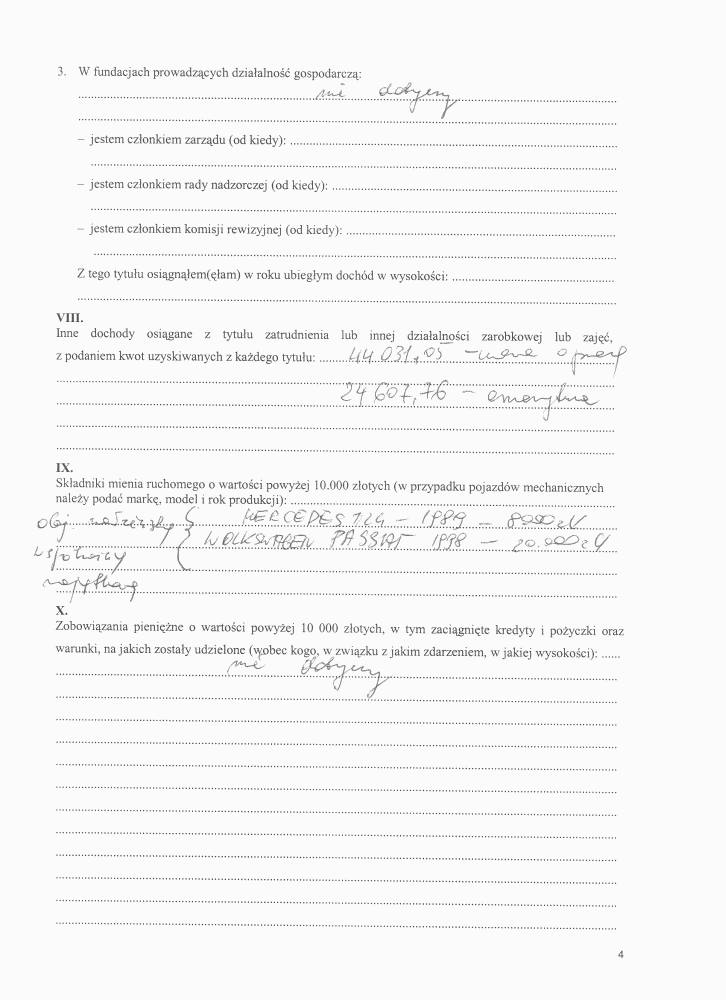 3. W fundacjach prowadzących działalność gospodarczą:
nie dotyczy
– jestem członkiem zarządu (od kiedy):
– jestem członkiem rady nadzorczej (od kiedy):
– jestem członkiem komisji rewizyjnej (od kiedy):
Z tego tytułu osiągnąłem(ęłam) w roku ubiegłym dochód w wysokości:
VIII.
Inne dochody osiągane z tytułu zatrudnienia lub innej działalności zarobkowej lub zajęć,
z podaniem kwot uzyskiwanych z każdego tytułu: 44 031,05 – umowa o pracę
24 607,76 – emerytura
IX.
Składniki mienia ruchomego o wartości powyżej 10.000 złotych (w przypadku pojazdów mechanicznych
należy podać markę, model i rok produkcji):
MERCEDES 124 – 1989 – 8000 zł
WOLKSWAGEN PASSAT 1998 – 20.000 zł
współwłasność
majątkowa
X.
Zobowiązania pieniężne o wartości powyżej 10 000 złotych, w tym zaciągnięte kredyty i pożyczki oraz
warunki, na jakich zostały udzielone (wobec kogo, w związku z jakim zdarzeniem, w jakiej wysokości): ......
nie dotyczy
4